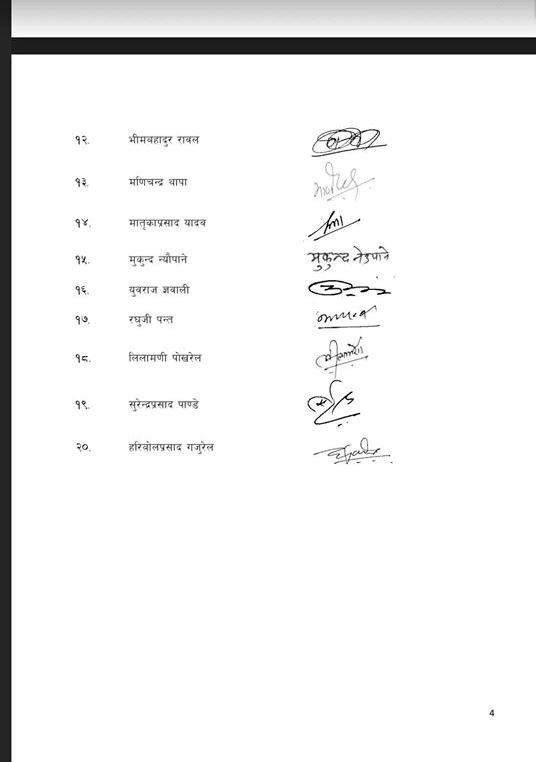 १२. भीमबहादुर रावल
१३. मणिचन्द्र थापा
१४. मातृकाप्रसाद यादव
१५. मुकुन्द न्यौपाने मुकुन्द नेउपाने
१६. युवराज ज्ञवाली
१७. रघुजी पन्त
१८. लिलामणी पोखरेल
१९. सुरेन्द्रप्रसाद पाण्डे
२०. हरिबोलप्रसाद गजुरेल
4